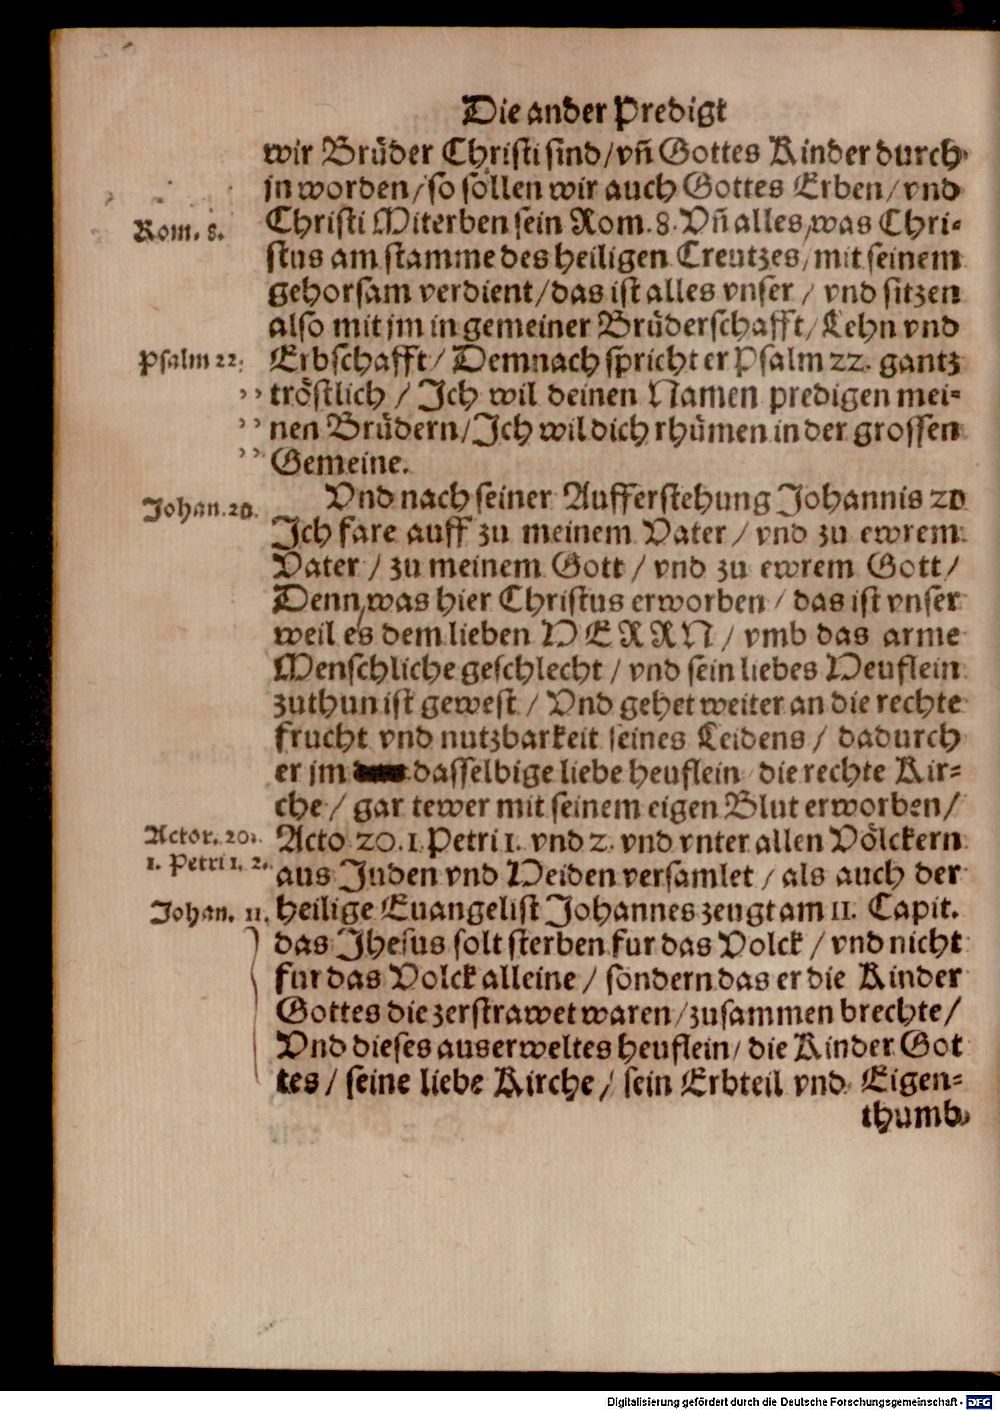 Die ander Predigt
wir Brüder Christi sind/vñ Gottes Kinder durch
jn worden/so söllen wir auch Gottes Erben/vnd
Rom. 8.
Christi Miterben sein Rom. 8. Vñ alles, was Chri-
stus am stamme des heiligen Creutzes/mit seinem
gehorsam verdient/das ist alles vnser / vnd sitzen
also mit jm in gemeiner Brüderschafft/Lehn vnd
Psalm 22.
Erbschafft/ Demnach spricht er Psalm 22. gantz
,, tröstlich / Ich wil deinen Namen predigen mei-
,, nen Brüdern/Ich wil dich rhümen in der grossen
,, Gemeine.
Johan. 20.
Vnd nach seiner Aufferstehung Johannis 20
Ich fare auff zu meinem Vater / vnd zu ewrem
Vater / zu meinem Gott / vnd zu ewrem Gott/
Denn, was hier Christus erworben / das ist vnser
weil es dem lieben HERRN / vmb das arme
Menschliche geschlecht / vnd sein liebes Heuflein
zuthun ist gewest / Vnd gehet weiter an die rechte
frucht vnd nutzbarkeit seines Leidens / dadurch
er jm dasselbige liebe heuflein / die rechte Kir-
che / gar tewer mit seinem eigen Blut erworben/
Actor. 20.
Acto 20. 1. Petri 1. vnd 2. vnd vnter allen Völckern
1. Petri 1. 2.
aus Juden vnd Heiden versamlet / als auch der
Johan. 11.
heilige Euangelist Johannes zeugt am 11. Capit.
das Jhesus solt sterben fur das Volck / vnd nicht
fur das Volck alleine / sondern das er die Kinder
Gottes die zerstrawet waren/zusammen brechte/
Vnd dieses auserweltes heuflein/ die Kinder Got
tes / seine liebe Kirche / sein Erbteil vnd Eigen-
thumb
Digitalisierung gefördert durch die Deutsche Forschungsgemeinschaft - DFG